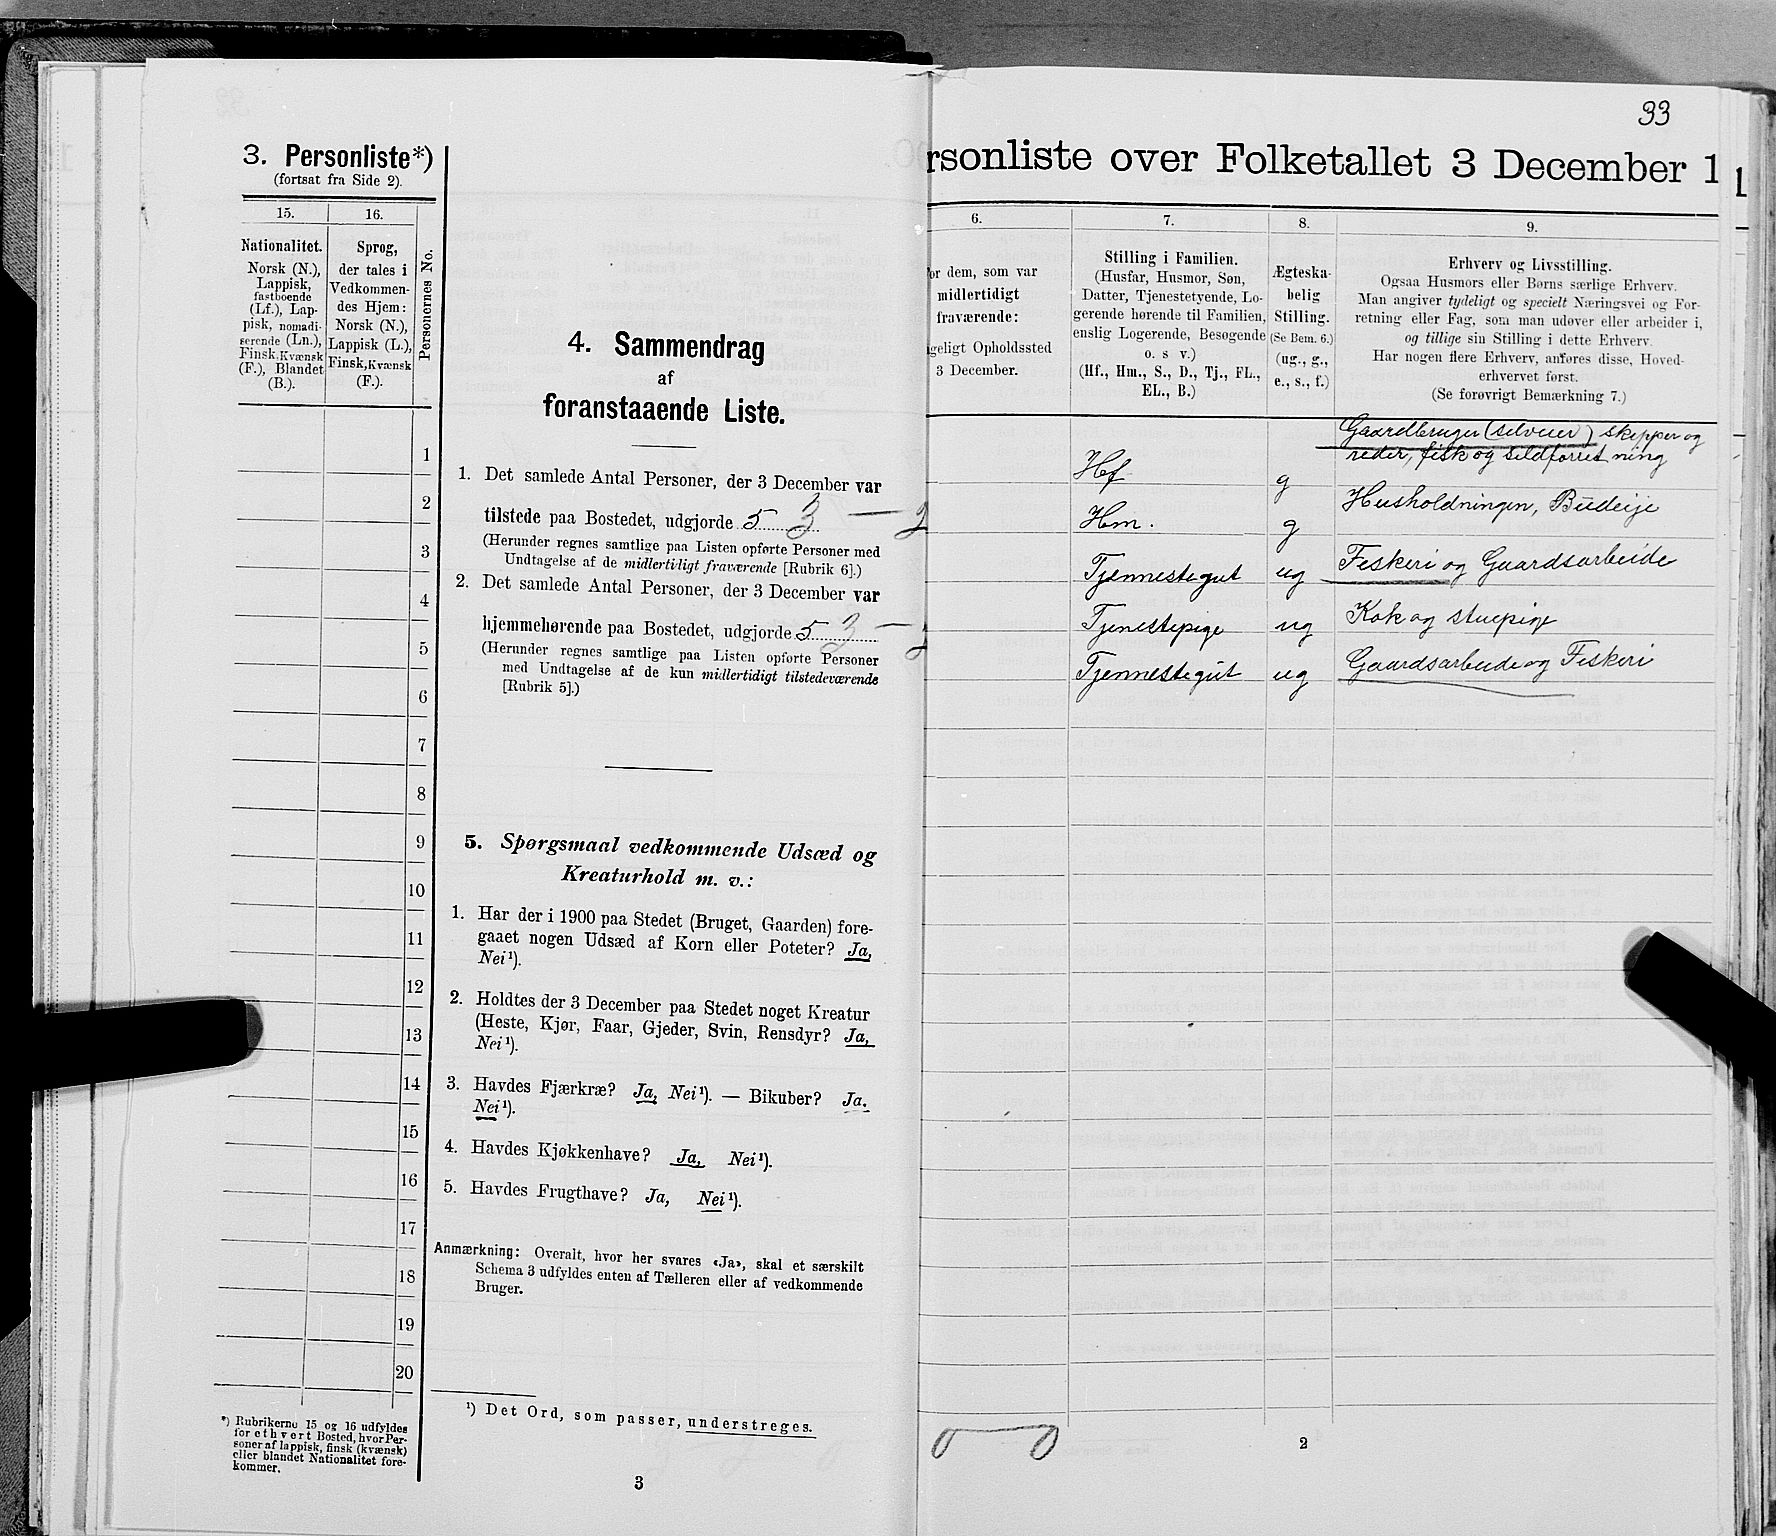 3. Personliste*)
(fortsat fra Side 2).
15.
16.
Personernes No.
Nationalitet.
Norsk (N.),
Lappisk,
fastboende
(Lf.), Lap-
pisk, nomadi-
serende (Ln.),
Finsk, Kvænsk
(F.), Blandet
(B.).
Sprog,
der tales i
Vedkommen-
des Hjem:
Norsk (N.),
Lappisk (L.),
Finsk, Kvænsk
(F.).
1
2
3
4
5
6
7
8
9
10
11
12
13
14
15
16
17
18
19
20
*) Rubrikerne 15 og 16 udfyldes
for ethvert Bosted, hvor Per-
soner af lappisk, finsk (kvænsk)
eller blandet Nationalitet fore-
kommer.
4. Sammendrag
af
foranstaaende Liste.
1. Det samlede Antal Personer, der 3 December var
tilstede paa Bostedet, udgjorde 5 3 — 2
(Herunder regnes samtlige paa Listen opførte Personer med
Undtagelse af de midlertidigt fraværende [Rubrik 6].)
2. Det samlede Antal Personer, der 3 December var
hjemmehørende paa Bostedet, udgjorde 5 3 —
(Herunder regnes samtlige paa Listen opførte Personer
med Undtagelse af de kun midlertidigt tilstedeværende
[Rubrik 5].)
5. Spørgsmaal vedkommende Udsæd og
Kreaturhold m. v.:
1. Har der i 1900 paa Stedet (Bruget, Gaarden) fore-
gaaet nogen Udsæd af Korn eller Poteter? Ja,
Nei¹).
2. Holdtes der 3 December paa Stedet noget Kreatur
(Heste, Kjør, Faar, Gjeder, Svin, Rensdyr? Ja,
Nei¹).
3. Havdes Fjærkræ? Ja, Nei¹). — Bikuber? Ja.
Nei¹).
4. Havdes Kjøkkenhave? Ja, Nei¹).
5. Havdes Frugthave? Ja, Nei¹).
Anmærkning: Overalt, hvor her svares «Ja», skal et særskilt
Schema 3 udfyldes enten af Tælleren eller af vedkommende
Bruger.
¹) Det Ord, som passer, understreges.
3
33
rsonliste over Folketallet 3 December 1
6.
7.
8.
9.
or dem, som var
midlertidigt
fraværende:
geligt Opholdssted
3 December.
Stilling i Familien.
(Husfar, Husmor, Søn,
Datter, Tjenestetyende, Lo-
gerende hørende til Familien,
enslig Logerende, Besøgende
o. s v.)
(Hf., Hm., S., D., Tj., FL.,
EL., B.)
Ægteska-
belig
Stilling.
(Se Bem. 6.)
(ug., g.,
e., s., f.)
Erhverv og Livsstilling.
Ogsaa Husmors eller Børns særlige Erhverv.
Man angiver tydeligt og specielt Næringsvei og For-
retning eller Fag, som man udøver eller arbeider i,
og tillige sin Stilling i dette Erhverv.
Har nogen flere Erhverv, anføres disse, Hoved-
erhvervet først.
(Se forøvrigt Bemærkning 7.)
Gaardbruger (selveier) skipper og
Hf g reder, fisk og sildforretning
Hm. g Husholdningen, Budeije
Tjennestegut ug Feskeri og Gaardsarbeide
Tjenestepige ug Kok og stuepige
Tjennestegut ug Gaardsarbeide og Feskeri
0 0
2